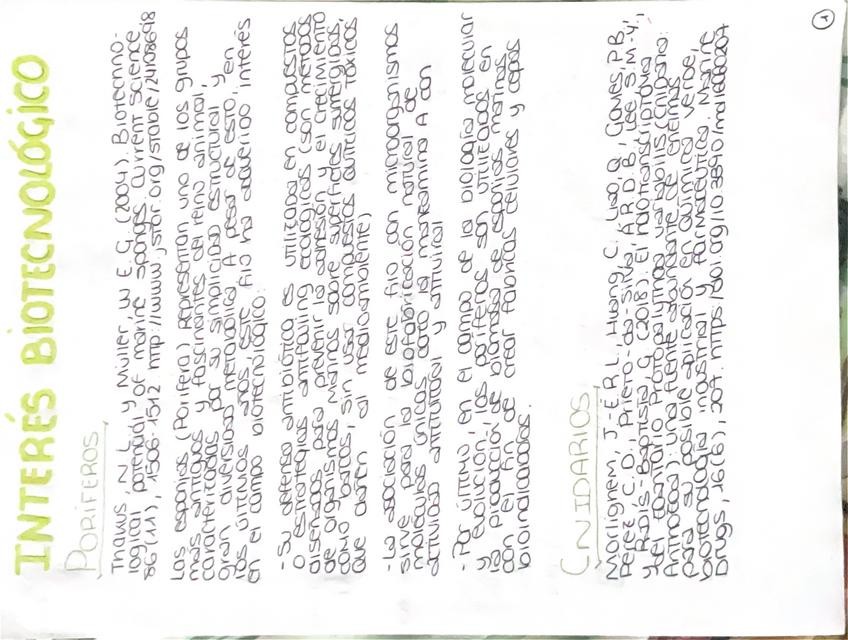 INTERÉS BIOTECNOLÓGICO
PORÍFEROS
Thakus, N.L. y Müller, W.E.G. (2004). Biotecno-
logical potential of marine sponges. Current Science
86 (11), 1506-1512 http://www.jstor.org/stable/24108698
Las esponjas (Porifera) representan uno de los grupos
más antiguos y fascinantes del reino animal,
caracterizadas por su simplicidad estructural y
gran diversidad metabólica. A pesar de esto, en
los últimos años, este filo ha adquirido interés
en el campo biotecnológico:
- Su defensa antibiótica es utilizada en compuestos
o estrategias antifouling ecológicas (son métodos
diseñados para prevenir la adhesión y el crecimiento
de organismos marinos sobre superficies sumergidas,
como barcos, sin usar compuestos químicos tóxicos
que dañen al medioambiente)
- La asociación de este filo con microorganismos
sirve para la biofabricación natural de
moléculas únicas como la manzamina A con
actividad antitumoral y antiviral
- Por último, en el campo de la biología molecular
y evolución, los poríferos son utilizados en
la producción de biomasa de esponjas marinas
con el fin de crear fábricas celulares y capas
bioindicadoras.
CNIDARIOS
Morlighem, J-É R.L., Huang, C., Liao, Q., Gomes, P.B.,
Pérez, C.D., Prieto-da-Silva, Á.R.D.B., Lee, S. M-Y.,
y Rádis-Baptista, G. (2018). El holotranscriptoma
del zoantario Protopalythoa variabilis (Cnidaria:
Anthozoa): una fuente abundante de enzimas
para su posible aplicación en Química Verde,
biotecnología industrial y farmacéutica. Marine
Drugs, 16(6), 207. https://doi.org/10.3390/md16060207
1